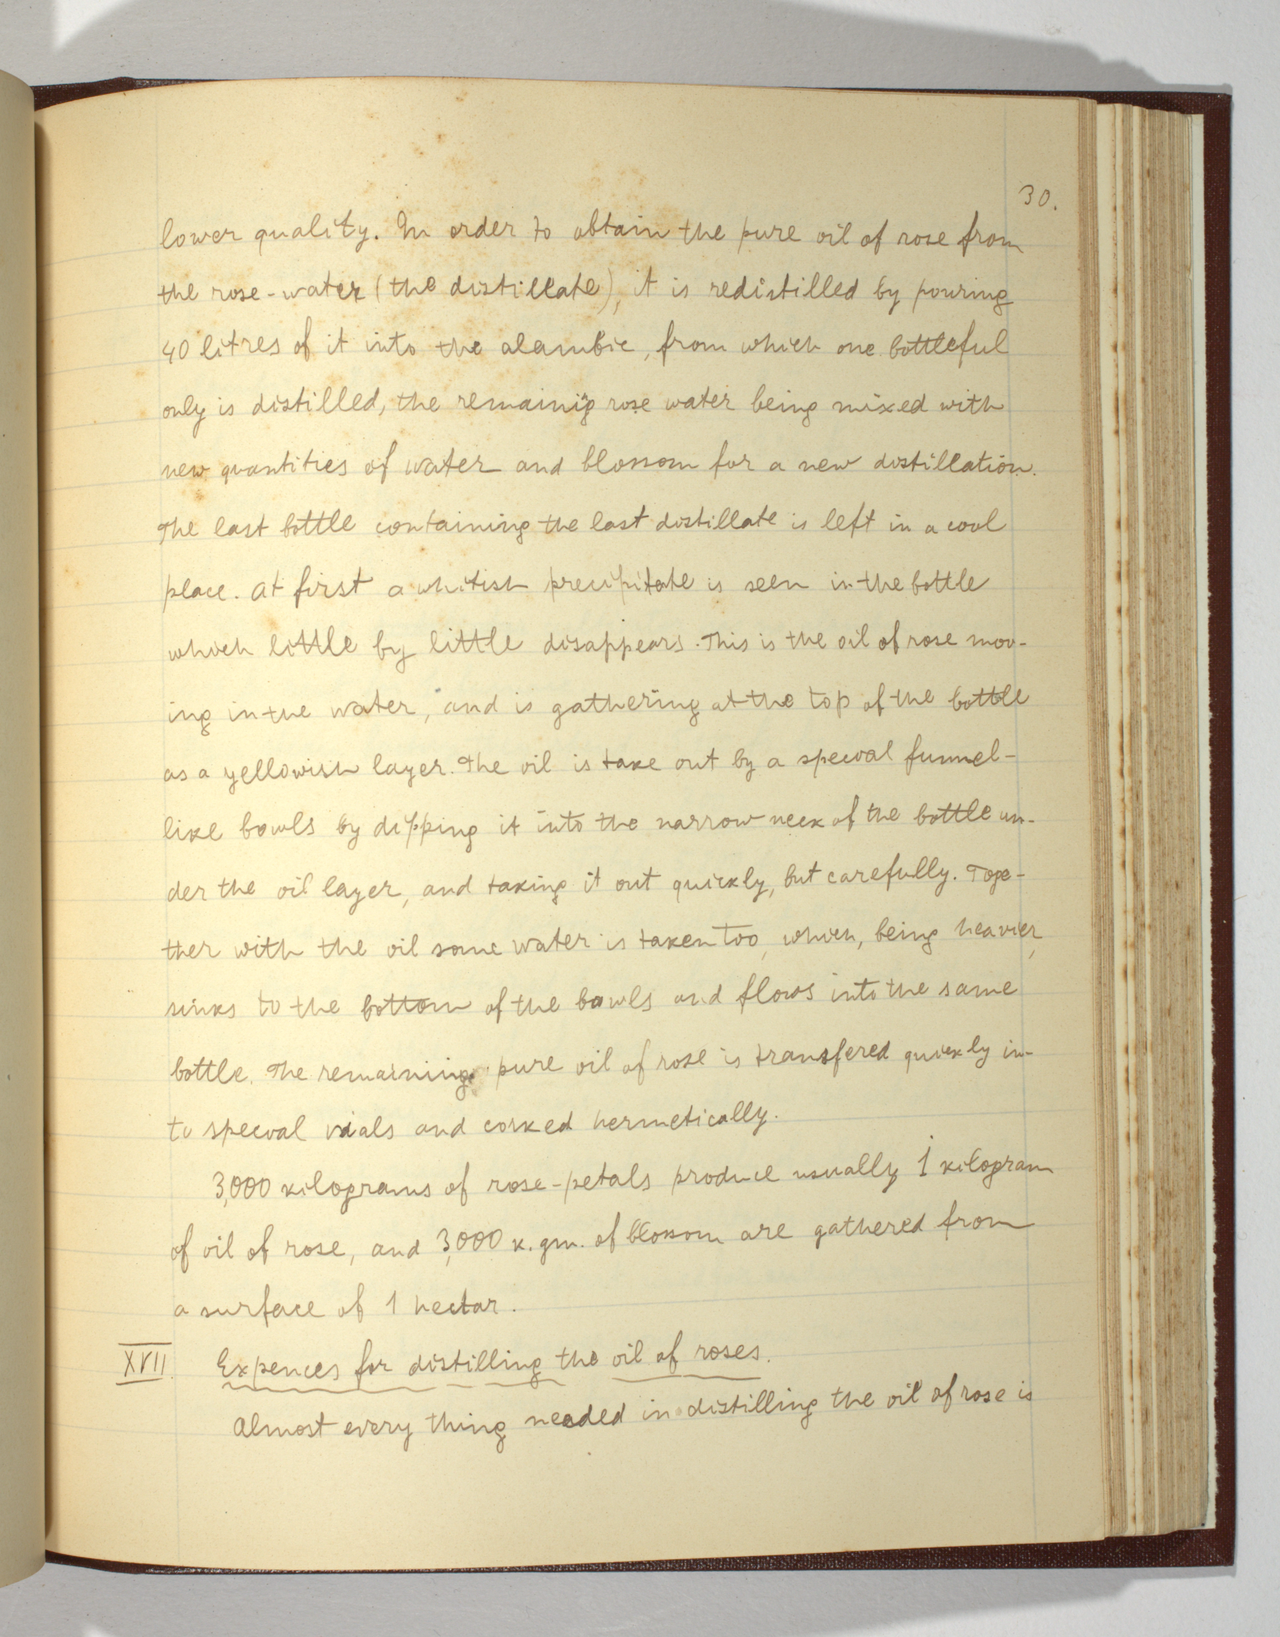 30.
lower quality. In order to obtain the pure oil of rose from
the rose-water (the distillate), it is redistilled by pouring
40 litres of it into the alambic, from which one bottleful
only is distilled, the remainig rose water being mixed with
new quantities of water and blossom for a new distillation.
The last bottle containing the last distillate is left in a cool
place. At first a whitish precipitate is seen in the bottle
which little by little disappears. This is the oil of rose mov-
ing in the water, and is gathering at the top of the bottle
as a yellowish layer. The oil is take out by a special funnel-
like bowls by dipping it into the narrow neck of the bottle un-
der the oil layer, and taking it out quickly, but carefully. Toge-
ther with the oil some water is taken too, which, being heavier,
sinks to the bottom of the bowls and flows into the same
bottle. The remaining pure oil of rose is transfered quickly in-
to special vials and corked hermetically.
3,000 kilograms of rose-petals produce usually 1 kilogram
of oil of rose, and 3,000 k.gm. of blossom are gathered from
a surface of 1 hectar.
XVII. Expences for distilling the oil of roses.
Almost every thing needed in distilling the oil of rose is